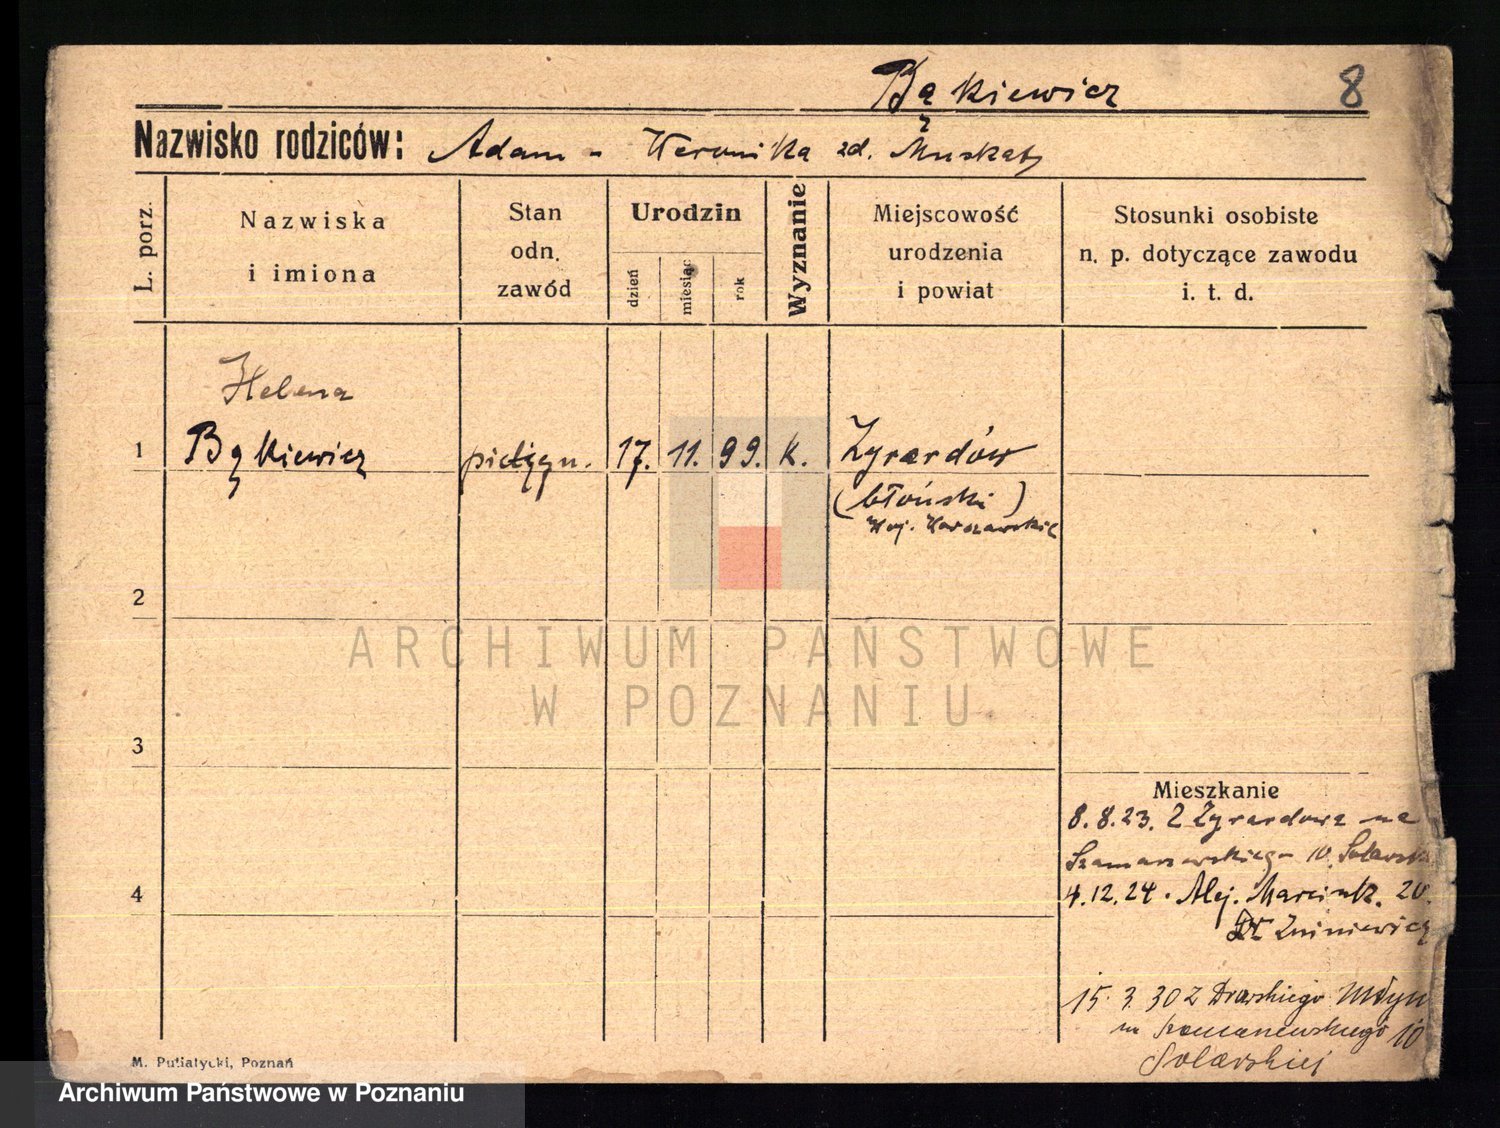 Bąkiewicz 8
Nazwisko rodziców: Adam - Weronika zd. Muskat
L. porz.
Nazwiska
i imiona
Stan
odn.
zawód
Urodzin
dzień
miesiąc
rok
Wyznanie
Miejscowość
urodzenia
i powiat
Stosunki osobiste
n. p. dotyczące zawodu
i. t. d.
Helena
1 Bąkiewicz pielęgn. 17. 11. 99. K. Żyrardów
(błoński)
Woj. Warszawskie
2
ARCHIWUM PAŃSTWOWE
W POZNANIU
3
Mieszkanie
8.8.23. Z Żyrardowa na
Szamarzewskiego 10. Solarsk
4
4.12.24. Alej. Marcink. 20.
Dr Zniniewicz
15.3.30 z Drawskiego Młyn
na 10
Solarskiej
M. Putiatycki, Poznań
Archiwum Państwowe w Poznaniu